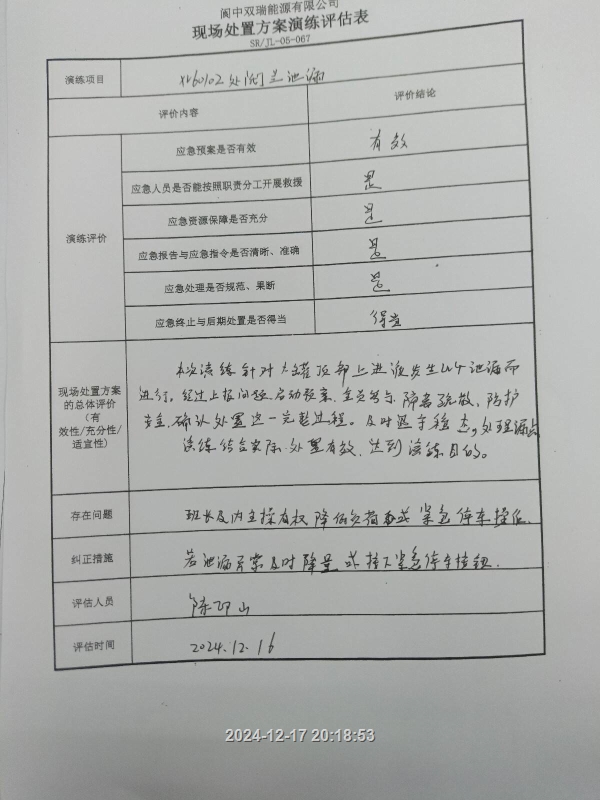 阆中双瑞能源有限公司
现场处置方案演练评估表
SR/JL-05-067
演练项目 处阀兰泄漏
评价内容 评价结论
演练评价
应急预案是否有效 有效
应急人员是否能按照职责分工开展救援 是
应急资源保障是否充分 是
应急报告与应急指令是否清晰、准确 是
应急处理是否规范、果断 是
应急终止与后期处置是否得当 得当
现场处置方案
的总体评价
(有
效性/充分性/
适宜性)
本次演练针对大罐顶部上进液发生泄漏而
进行。经过上报问题,启动预案,全员参与,疏散、防护
安全,确认处置这一完整过程。及时处理漏点
演练结合实际,处置有效,达到演练目的。
存在问题 班长及内主操有权降低负荷或紧急停车操作.
纠正措施 若泄漏严重及时降量或按下紧急停车按钮.
评估人员
评估时间 2024.12.16
2024-12-17 20:18:53